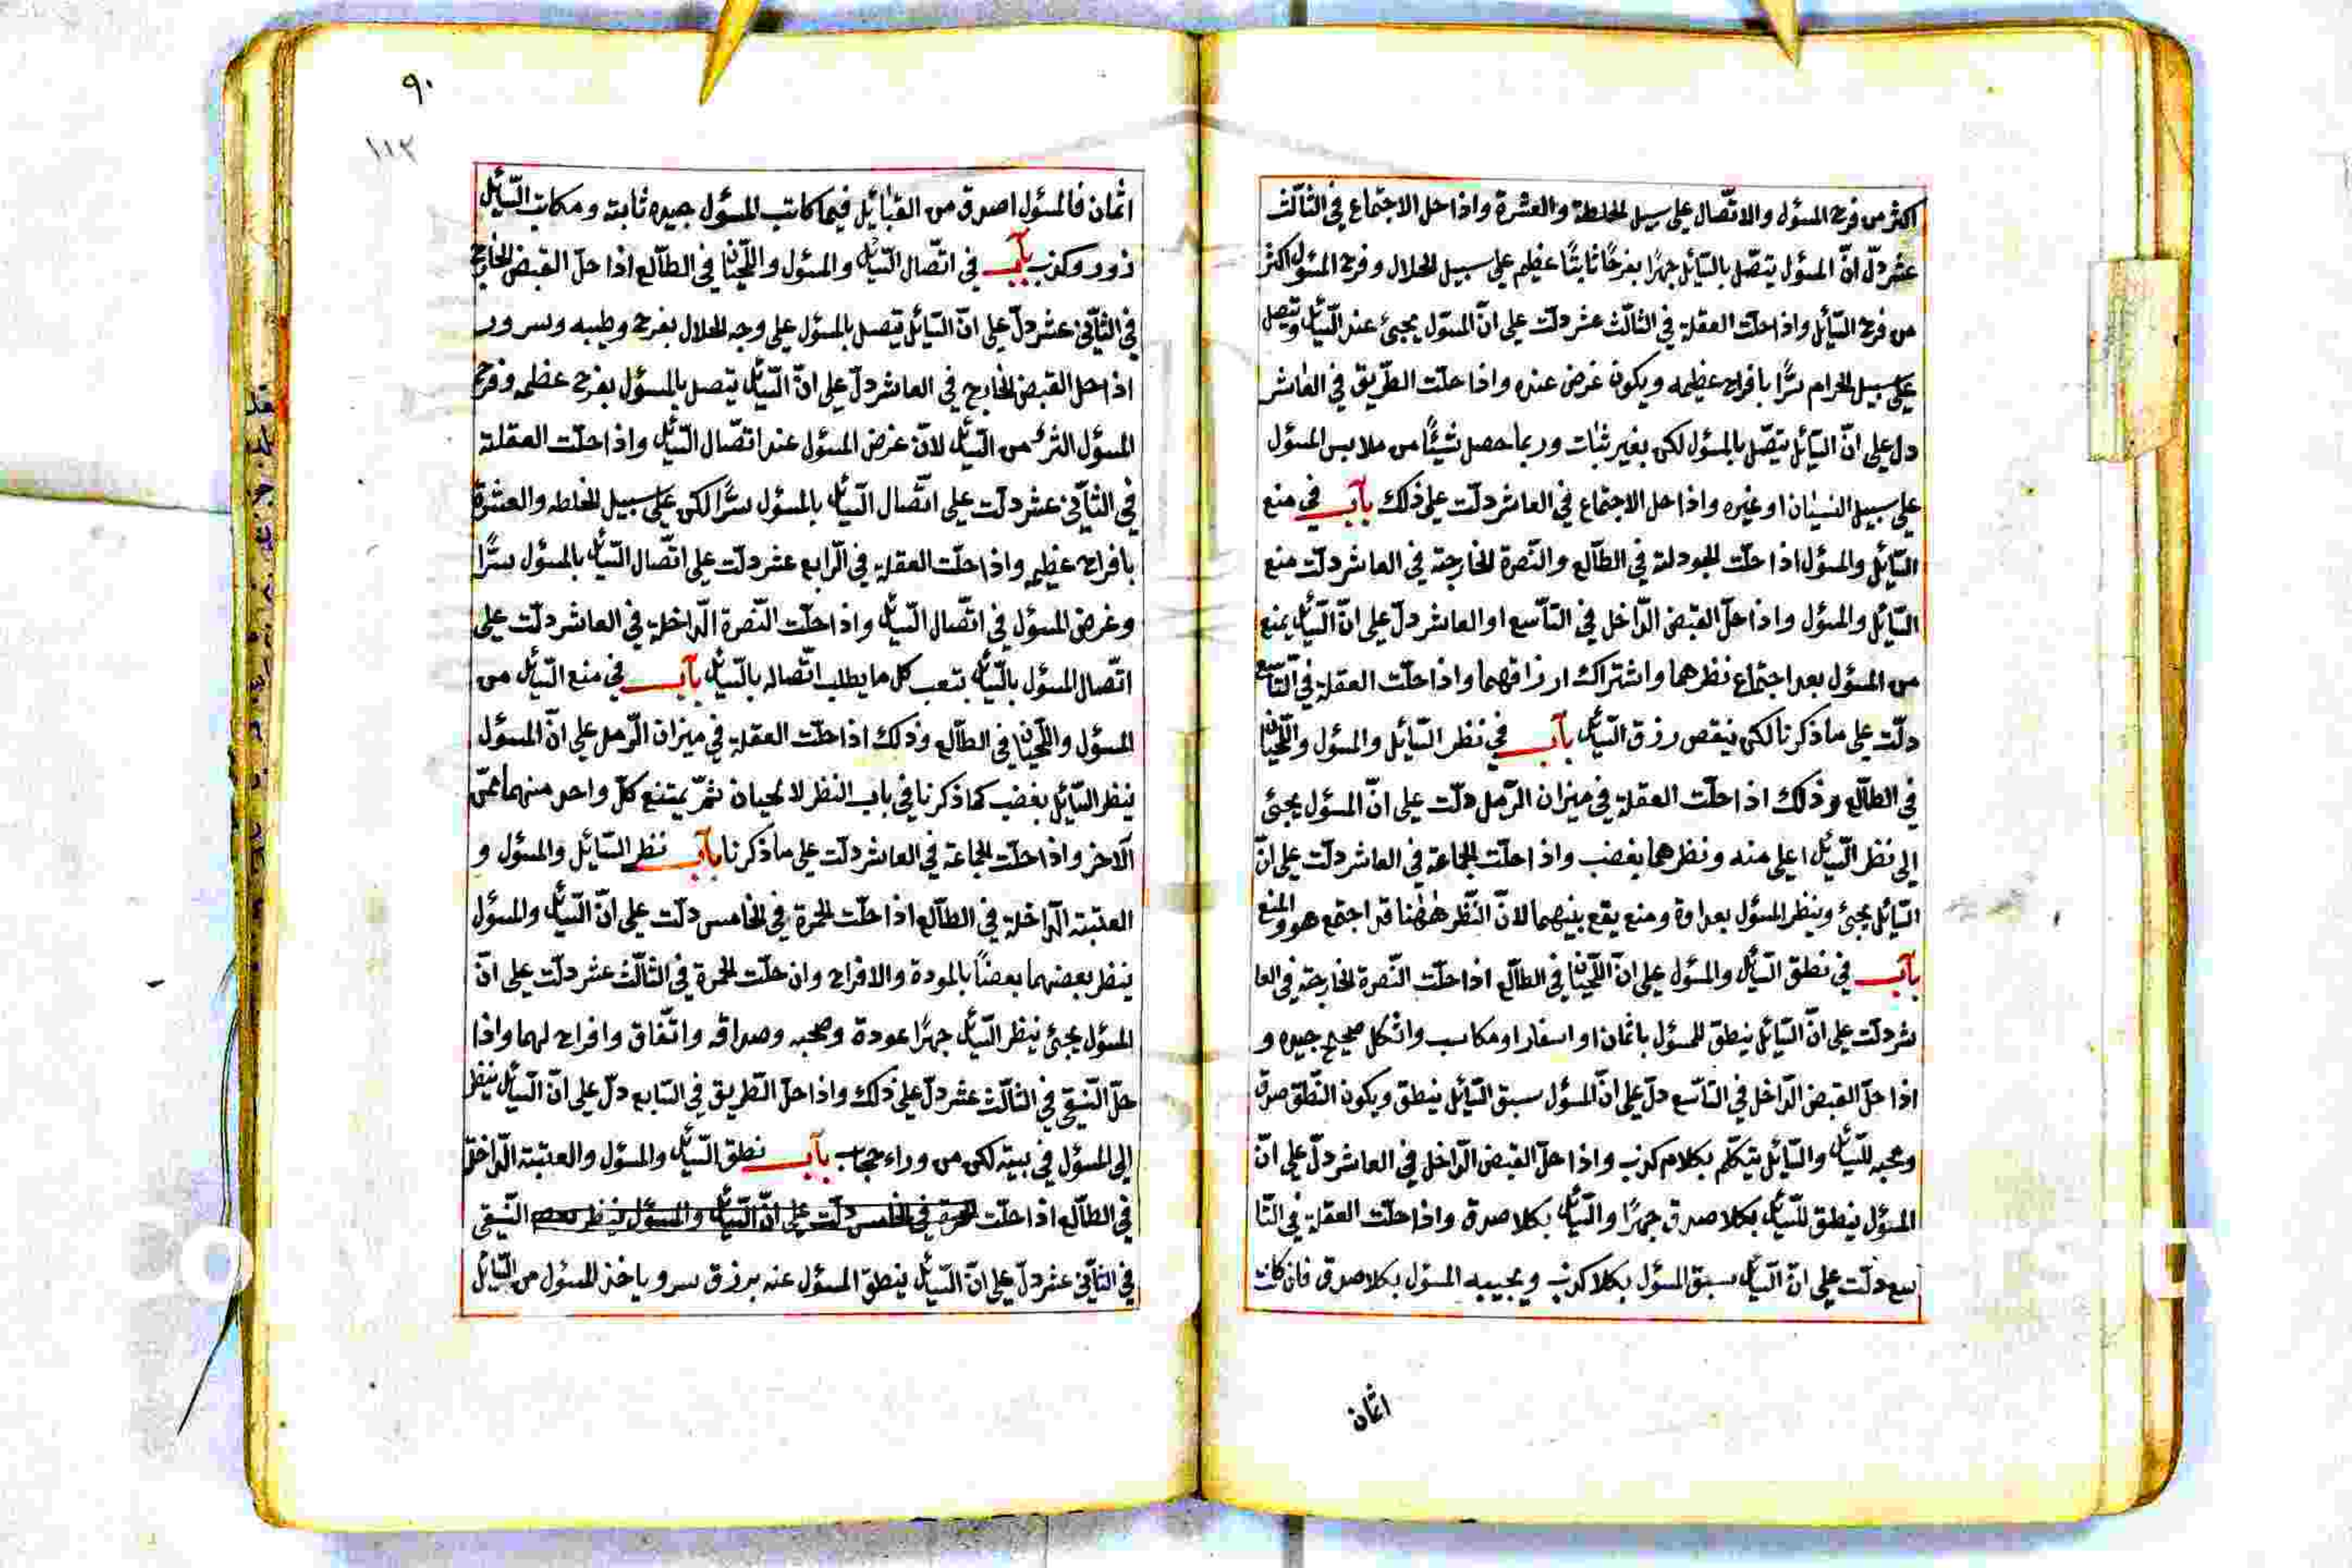 اكثر من فرح المسؤل والاتّصال على سبيل الخلطة والعشرة واذا حل الاجتماع فى الثالث
عشر دلّ انّ المسؤل يتصّل بالسّائل جهرًا بفرحًا ثابتًا عظيم على سبيل الحلال وفرح المسؤل اكثر
من فرح السّائل واذا حلّت العقلة فى الثالث عشر دلّت على انّ المسؤل يجيئ عند السّائل ويتصل
على سبيل الحرام سرًّا بافراح عظيمه ويكون غرض عنده واذا حلّت الطّريق فى العاشر
دل على انّ السّائل يتصّل بالمسؤل لكن بغير ثبات وربما حصل شيئًا من ملابس المسؤل
على سبيل النسيان او غيره واذا حل الاجتماع فى العاشر دلّت على ذلك بآب فى منع
السّائل والمسؤل اذا حلّت الجودلة فى الطّالع والنّصرة الخارجة فى العاشر دلّت منع
السّائل والمسؤل واذا حلّ القبض الدّاخل فى التاسع او العاشر دلّ على انّ السّائل يمنع
من المسؤل بعد اجتماع نظرهما واشتراك ارزاقهما واذا حلّت العقلة فى التّاسع
دلّت على ما ذكرنا لكن ينقص رزق السّائل بآب فى نظر السّائل والمسؤل واللّحيان
فى الطالع وذلك اذا حلّت العقلة فى ميزان الرّمل دلّت على انّ المسؤل يجيئ
إلى نظر السّائل اعلى منه ونظرهما بغضب واذا حلّت الجماعة فى العاشر دلّت على انّ
السّائل يجيئ وينظر المسؤل بعداوة ومنع يقع بينهما لانّ النّظر ههنا قد اجتمع هو والمنع
بآب فى نطق السّائل والمسؤل على انّ اللّحيان فى الطّالع اذا حلّت النّصرة الخارجة فى العا
شر دلّت على انّ السّائل ينطق للمسؤل باثمان او اسفار او مكاسب واشكل صحيح جيده و
اذا حلّ القبض الدّاخل فى التّاسع دلّ على انّ المسؤل سبق السّائل ينطق ويكون النّطق صدق
ومحبه للسّائل والسّائل يتكلّم بكلام كذب واذا حلّ القبض الدّاخل فى العاشر دلّ على انّ
المسؤل ينطق للسّائل بكلا صدق جهرًا والسّائل بكلا صدق واذا حلّت العقلة فى التّا
سع دلّت على انّ السّائل سبق المسؤل بكلا كذب ويجيبه المسؤل بكلا صدق فان كان
اثمان
٩٠
١١٢
اثمان فالمسؤل اصدق من القبائل فيما كاتب المسؤل جيده ثابته ومكاتب السّائل
زور وكذب بآب فى اتّصال السّائل والمسؤل واللّحيان فى الطّالع اذا حلّ القبض الخارج
فى الثّانى عشر دلّ على انّ السّائل يتصل بالمسؤل على وجه الحلال بفرح وطيبه وسرور
اذا حل القبض الخارج فى العاشر دلّ على انّ السّائل يتصل بالمسؤل بفرح عظمه وفرح
المسؤل اكثر من السّائل لانّ غرض المسؤل عند اتصّال السّائل واذا حلّت العقلة
فى الثّانى عشر دلّت على اتّصال السّائل بالمسؤل سرًّا لكن على سبيل الخلطه والعشرة
بافراح عظيم واذا حلّت العقلة فى الرّابع عشر دلّت على اتّصال السّائل بالمسؤل سرًّا
وغرض المسؤل فى اتّصال السّائل واذا حلّت النّصرة الدّاخلة فى العاشر دلّت على
اتّصال المسؤل بالسّائل بتعب كل ما يطلب اتّصاله بالسّائل بآب فى منع السّائل من
المسؤل واللّحيان فى الطّالع وذلك اذا حلّت العقلة فى ميزان الرّمل على انّ المسؤل
ينظر السّائل بغضب كما ذكرنا فى باب النظر لا لحيان ثمّ يمتنع كلّ واحد منهما عن
الآخر واذا حلّت الجماعة فى العاشر دلّت على ما ذكرنا بآب نظر السّائل والمسؤل و
العتبته الدّاخلة فى الطّالع اذا حلّت الحمرة فى الخامس دلّت على انّ السّائل والمسؤل
ينظر بعضهما بعضًا بالمودة والافراح وان حلّت الحمرة فى الثالث عشر دلّت على انّ
المسؤل يجيئ ينظر السّائل جهرًا عودة وصحبه وصداقه واتّفاق وافراح لهما واذا
حلّ النّقى فى الثالث عشر دلّ على ذلك واذا حلّ الطّريق فى السّابع دلّ على انّ السّائل ينظر
إلى المسؤل فى بيته لكن من وراء حجاب بآب نطق السّائل والمسؤل والعتبته الدّاخلة
فى الطّالع اذا حلّت الحمرة فى الخامس دلّت على انّ السّائل والمسؤل ينظر بعض النّقى
فى الثّانى عشر دلّ على انّ السّائل ينطق المسؤل عنه برزق سر وياخذ المسؤل من السّائل